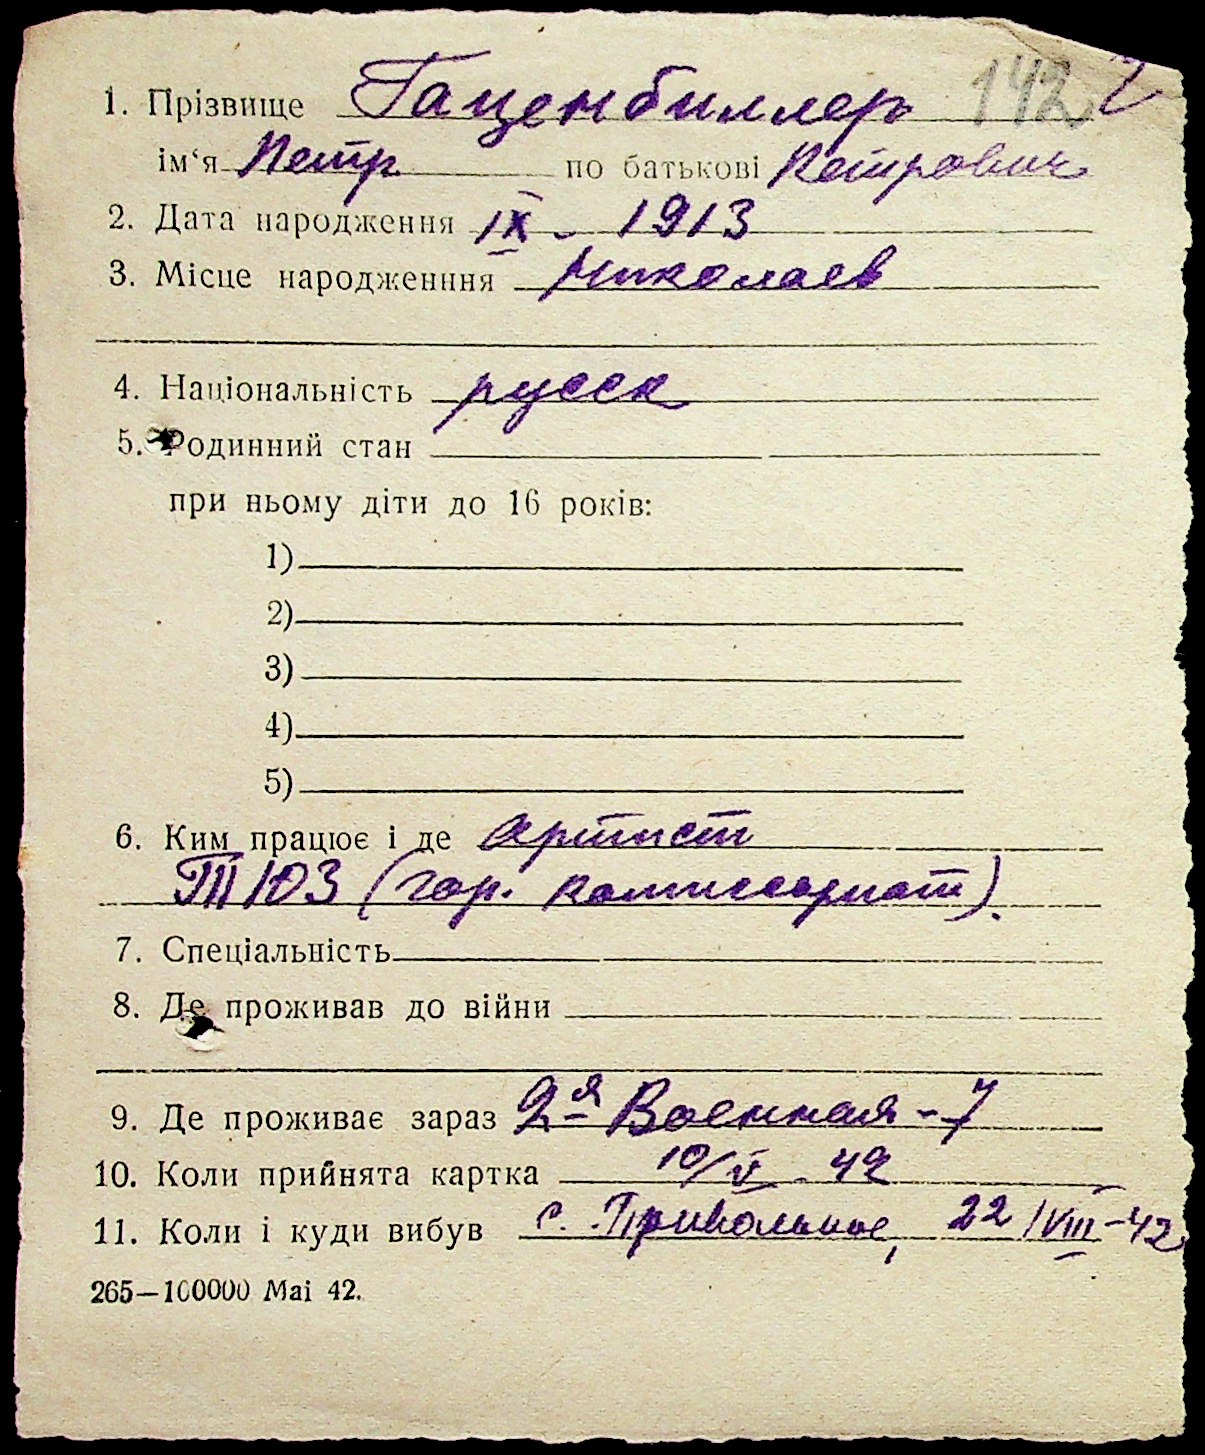 142
1. Прізвище Гаценбиллер
ім‘я Петр по батькові Петрович
2. Дата народження IX - 1913
3. Місце народженння Николаев
4. Національність русск
5. Родинний стан
при ньому діти до 16 років:
1)
2)
3)
4)
5)
6. Ким працює і де артист
ТЮЗ (гор. комиссариат).
7. Спеціальність
8. Де проживав до війни
9. Де проживає зараз 2я Военная - 7
10. Коли прийнята картка 10/V - 42
11. Коли і куди вибув с. Привольное, 22/VIII-42
265—100000 Маі 42.